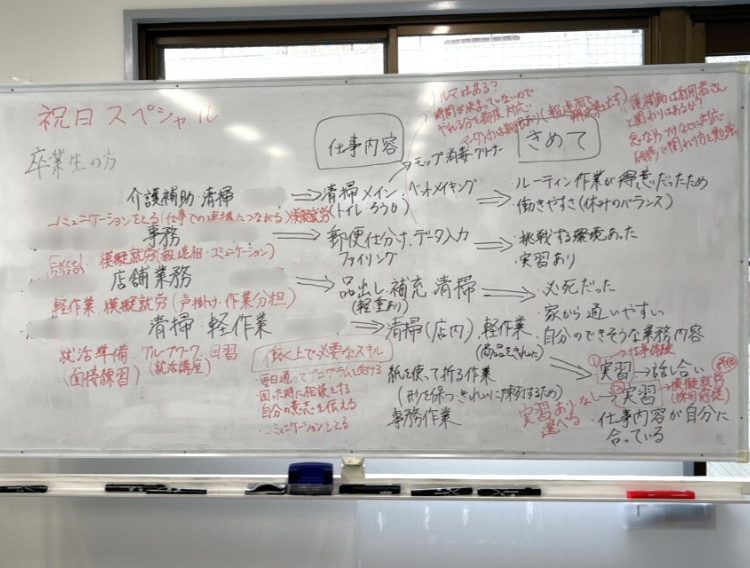 祝日スペシャル
卒業生の方
仕事内容
きめて
ノルマはある?
時間は決まっていないので
やれる分を都度対応
データ入力は
(報連相で
護補助は利用者さん
と関わりはあるか?
研修で関わり方を勉強
モップ 消毒 クリーナー
介護補助 清掃
→清掃メイン・ベットメイキング
(トイレ・ろうか)
⇒・ルーティン作業が得意だったため
・働きやすさ(休みのバランス)
コミュニケーションをとる(仕事での連携につながる)模擬就労
事務
→郵便仕分け、データ入力
ファイリング
⇒・挑戦する環境あった
・実習あり
Excel 模擬就労(報連相・コミュニケーション)
店舗業務
⇒品出し・補充 清掃
(軽重あり)
⇒・必死だった
・家から通いやすい
軽作業 模擬就労(声掛け・作業分担)
清掃 軽作業
→清掃(店内)、軽作業
(商品をきれに)
・自分のできそうな業務内容
就活準備、グループワーク、自習
(面接練習) (就活講座)
働く上で必要なスキル
・毎日通ってプログラムを受ける
・困った時に相談をする
自分の意志を伝える
・コミュニケーションをとる
紙を使って折る作業
(形を保つ・きれいに陳列するため)
事務作業
①→仕事体験
実習→話し合い
②→実習→模擬就労
(採用前提)
実習ありなし
選べる
・仕事内容が自分に
合っている